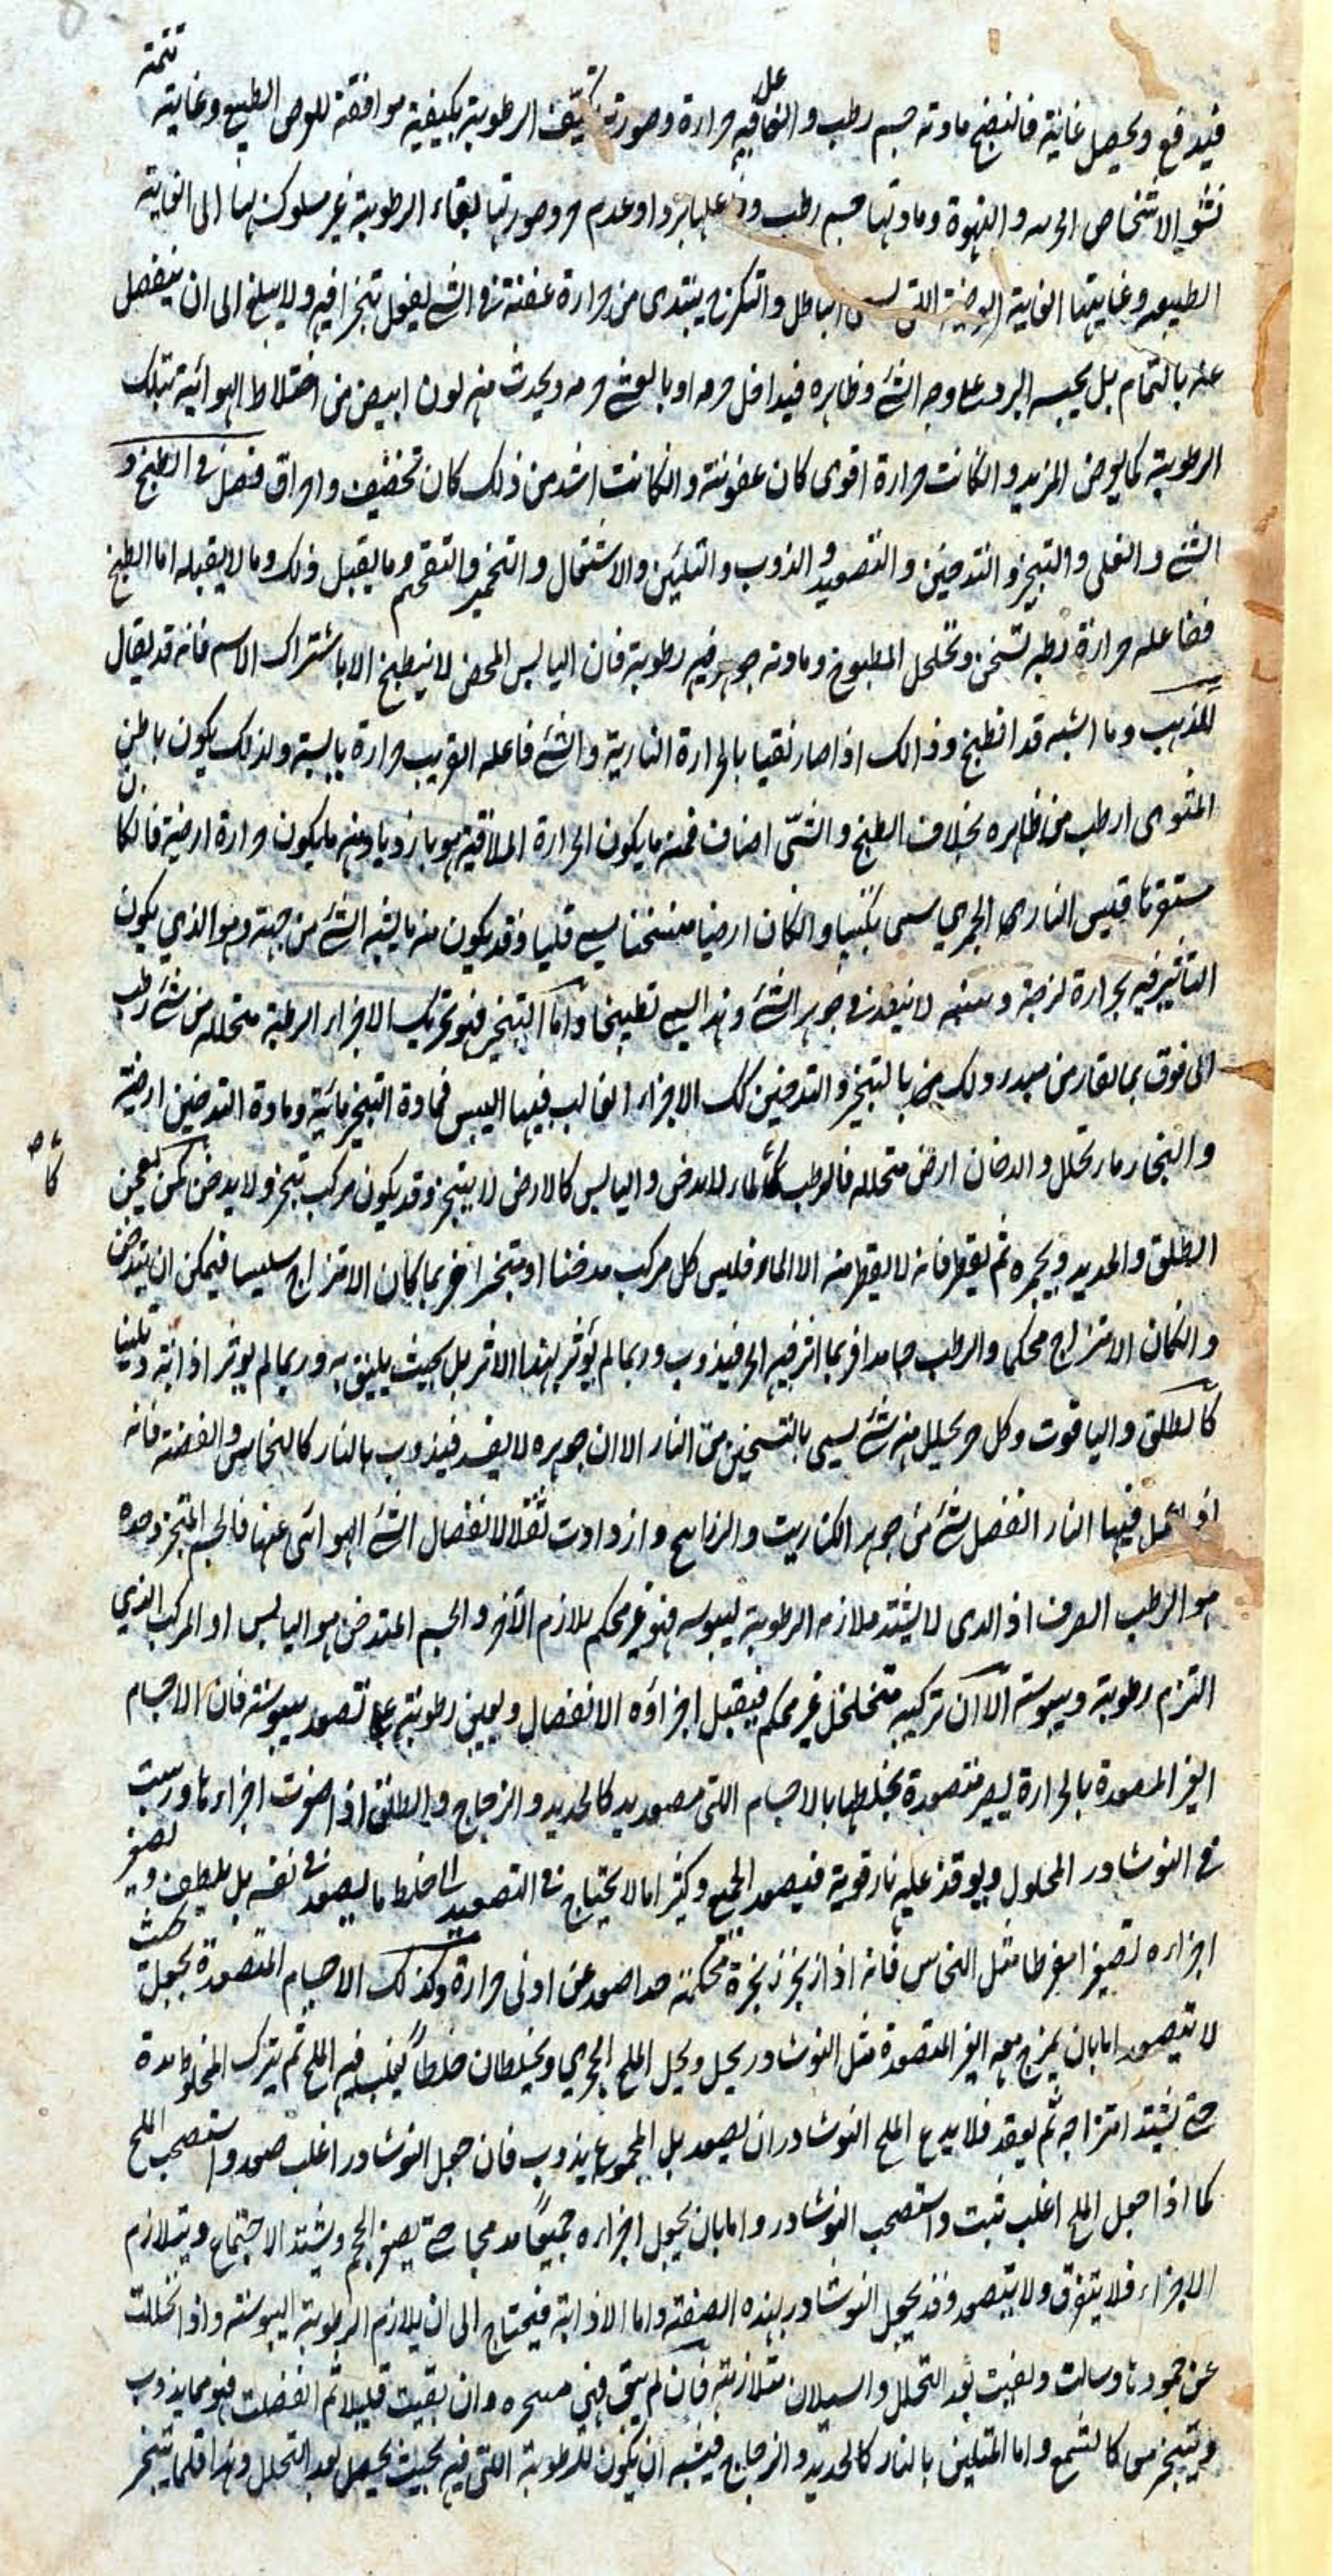 تتمة
فيدفع ويحصل غايته فالنضج مادته جسم رطب والفاعل فيه حرارة وصورته تكيف الرطوبة بكيفية موافقة للغرض الطبيعي وغايته
نشو الاشخاص الجزئية والنهوة ومادتها جسم رطب وفاعلها برد او عدم حر وصورتها بقاء الرطوبة غير مسلوك بها الى الغاية
الطبيعية وغايتها الغاية العرضية اللتى الباطل والتكرج يبتدى من حرارة عفنة فى الشئ يفعل تبخرا فيه ولا يبلغ الى ان ينفصل
عنه بالتمام بل يحبسه البرد على وجه الشئ وظاهره فيداخل جرمه او يغشى جرمه ويحدث منه لون ابيض من اختلاط الهوائية بتلك
الرطوبة كما يعرض للزبد وان كانت حرارة اقوى كان عفونة وان كانت اشد من ذلك كان تجفيف واحراق فصل فى الطبخ و
الشئ والقلى والتبخير والتدخين والتصعيد والذوب والتليين والاشتعال والتجمير والتفحم وما يقبل ذلك وما لا يقبله اما الطبخ
ففاعله حرارة رطبة تسخن وتخلخل المطبوخ ومادته جوهر فيه رطوبة فان اليابس المحض لا ينطبخ الا باشتراك الاسم فانه قد يقال
للذهب وما اشبه قد انطبخ وذالك اذا صار نقيا بالحرارة النارية والشئ فاعله القريب حرارة يابسة ولذلك يكون باطن
المشوى ارطب من ظاهره بخلاف الطبخ والشى اصناف فمنه ما يكون الحرارة الملاقية هو بارزويا ومنه ما يكون حرارة ارضية فان كان
مستقرتا قليس النارى الجمري سمى تكبيبا وان كان ارضيا متسخنا يسمى قليا وقد يكون منه ما يشبه الشئ من جهة وهو الذي يكون
التأثير فيه بحرارة لزجة دهنية لا ينفذ فى جوهر الشئ وهذا يسمى تطبيخا واما التبخير فهو تحريك الاجزاء الرطبة متحللة من شئ رطب
الى فوق بما يقارن من مبدء ذلك بالتبخير والتدخين كك الاجزاء الغالب فيها اليبس فمادة التبخير مائية ومادة التدخين ارضية
والبخار ماء تحلل والدخان ارض متحللة فالرطب كالماء لا يدخن واليابس كالارض لا يتبخر وقد يكون مركب يتبخر ولا يدخن كمن يعجن
الطلق والحديد ويجمره ثم يقطر فانه لا يقطر منه الا الماء فليس كل مركب مدخنا او متبخرا فربما كان الامتزاج سلسا فيمكن ان يتدخن
وان كان الامتزاج محكما والرطب جامدا فربما اثر فيه الحر فيذوب وربما لم يؤثر بهذا الاثر بل بحيث يلين به وربما لم يوثر اذابة وتليينا
كالطلق والياقوت وكل حر يحلل منه شئ يسمى بالتسخين من النار الا ان جوهره لا يفسد فيذوب بالنار كالنحاس والفضة فانه
اذا عمل فيها النار انفصل شئ من جوهر الكباريت والزرانيخ وازدادت ثقلا لانفصال الشئ الهوائى عنها فالجسم المتبخر وحده
هو الرطب الصرف او الذى لا يشتد ملازمه الرطوبة ليبوسته فهو غير محكم تلازم الاخر والجسم المتدخن هو اليابس او المركب الذي
التزم رطوبة ويبوسته الا ان تركيبه متخلخل غير محكم فيقبل اجزاؤه الانفصال ويعين رطوبته على تصعد يبوسته فان الاجسام
الغير المصعدة بالحرارة يصير متصعدة بخلطها بالاجسام اللتى تتصعد كالحديد والزجاج والطلق اذا صغرت اجزاءها وربيت
فى النوشادر المحلول ويوقد عليه نار قوية فيصعد الجميع وكثيرا ما لا يحتاج فى التصعيد الى خلط ما يصعد فى نفسه بل يلطف ويصغر
اجزاءه تصغيرا مفرطا مثل النحاس فانه اذا زنجر زنجرة محكمة جدا صعد عن ادنى حرارة وكذلك الاجسام المتصعدة يجعل بحيث
لا تتصعد اما بان يمزج معه الغير المتصعدة مثل النوشادر يحل ويحل الملح الحجري ويخلطان خلطا يغلب فيه الملح ثم يترك المخلوط مدة
حتى يشتد امتزاجه ثم يعقد فلا يدع الملح النوشادر ان يصعد بل المجموع يذوب فان جعل النوشادر اغلب صعد واستصحب الملح
كما اذا جعل الملح اغلب ثبت واستصحب النوشادر واما بان يجعل اجزاءه جميعا مدمجا حتى يصغر الحجم ويشتد الاجتماع ويتلازم
الاجزاء فلا يتفرق ولا يتصعد وقد يجعل النوشادر بهذه الصفة واما الاذابة فيحتاج الى ان يلازم الرطوبة اليبوسة واذا انحللت
عن جمودها وسالت وبقيت بعد التحلل والسيلان متلازمة فان لم يبق فهى متبخرة وان بقيت قليلا ثم انفصلت فهو مما يذوب
ويتبخر كالشمع واما المتلين بالنار كالحديد والزجاج فيشبه ان يكون للرطوبة اللتى فيه بحيث يحصل بعد التحلل وهذا قلما يتبخر